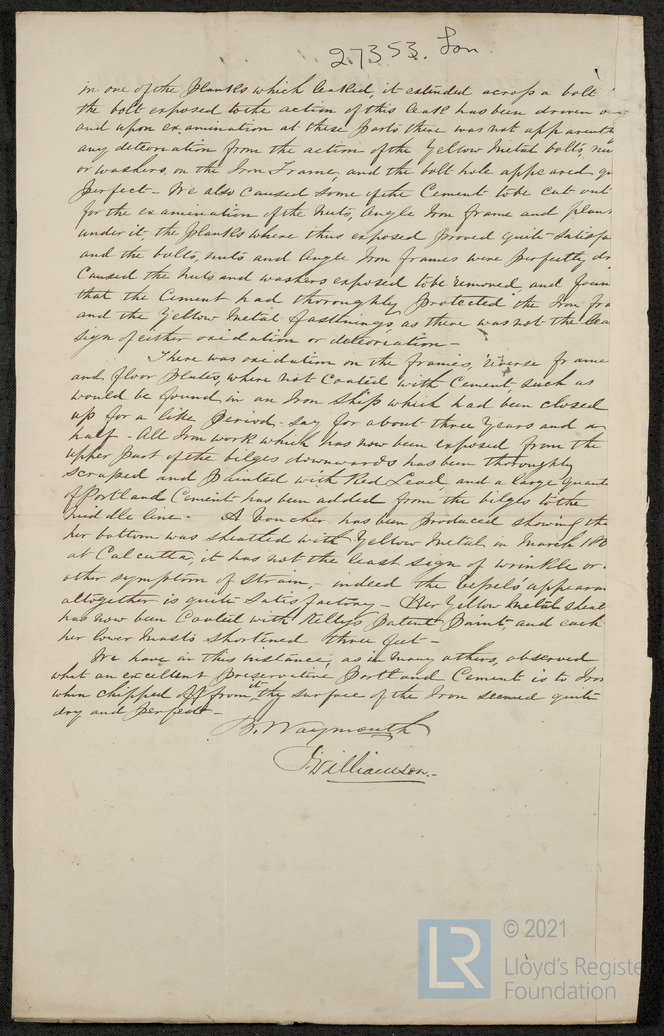 27353. Lon.
in one of the planks which leaked, it extended across a bolt
the bolt exposed to the action of this leak has been driven
and upon examination at these parts there was not apparent
any deteroration from the action of the Yellow Metal bolts, nu
or washers, on the Iron Frame, and the bolt hole appeared qu
perfect - We also caused some of the Cement to be cut out
for the examination of the Nuts, Angle Iron frame and plan
under it, the planks where thus exposed proved quite satisfa
and the bolts, nuts and Angle Iron frames were perfectly dr
Caused the Nuts and washers exposed to be removed, and foun
that the Cement had thoroughly protected the Iron fra
and the Yellow Metal fastenings as there was not the lea
sign of either oxidation or deteoriation -
There was oxidation on the frames, reverse frame
and floor plates, where not Coated with Cement such as
would be found in an Iron Ship which had been closed
up for a like Period - say for about three Years and a
half - All Iron work which has now been exposed from the
upper part of the bilges downwards has been thoroughly
scraped and painted with Red Lead, and a large quant
of Portland Cement has been added from the bilges to the
middle line - A Voucher has been produced showing tha
her bottom was sheathed with Yellow Metal in March 186
at Calcutta, it has not the least sign of wrinkle or
other symptom of strain, - indeed the Vessels' appearan
altogether is quite satisfactory - Her Yellow Metal sheat
has now been Coated with Kelly's Patent Paint, and each
her lower Masts shortened three feet -
We have in this instance, as in many others, observed
what an excellent preservative Portland Cement is to Iron
when chipped off from it the surface of the Iron seemed quite
dry and perfect -
B. Waymouth
J Williamson -
© 2021
LR
Lloyd's Register
Foundation